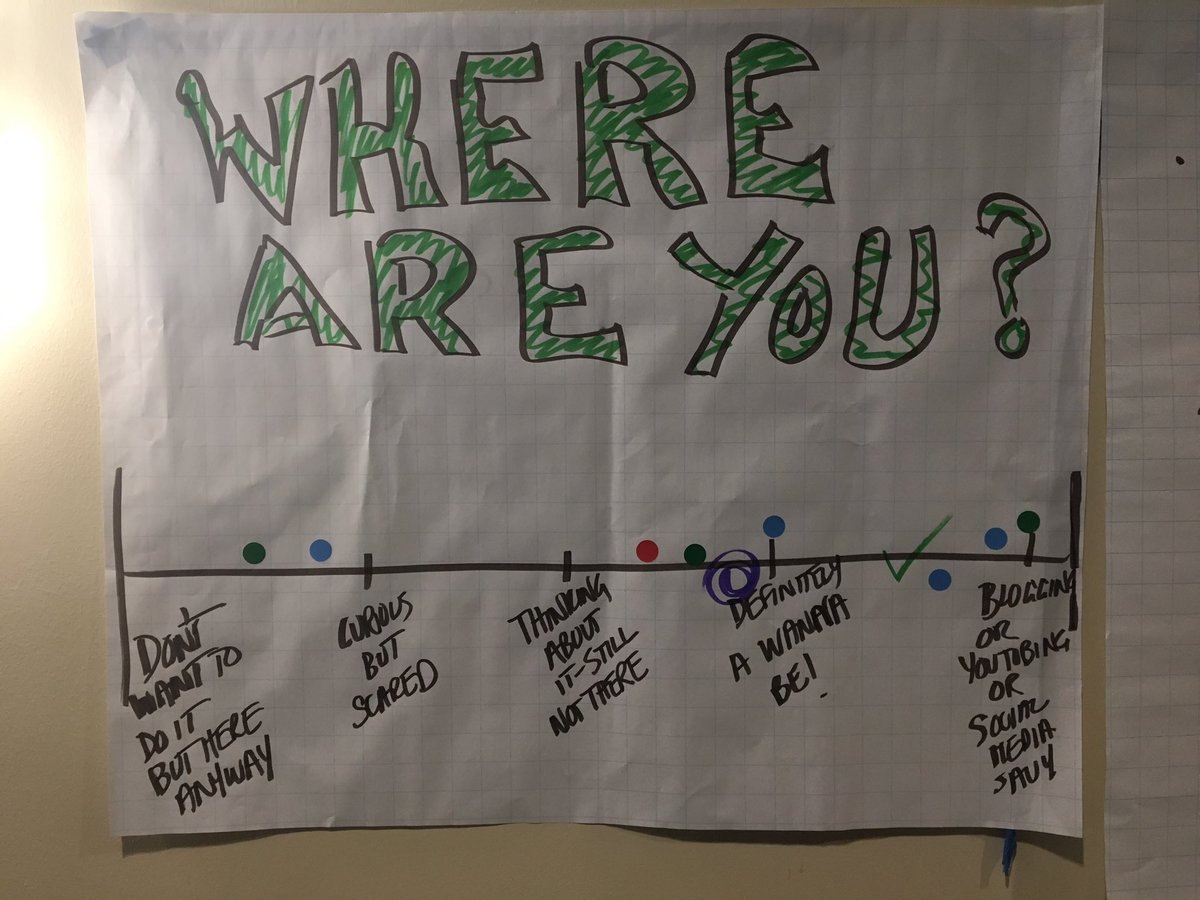 WHERE
ARE YOU?
DON'T
WANT TO
DO IT
BUT HERE
ANYWAY
CURIOUS
BUT
SCARED
THINKING
ABOUT
IT-STILL
NOT THERE
DEFINITELY
A WANNA
BE!
BLOGGING
OR
YOUTUBING
OR
SOCIAL
MEDIA
SAVY